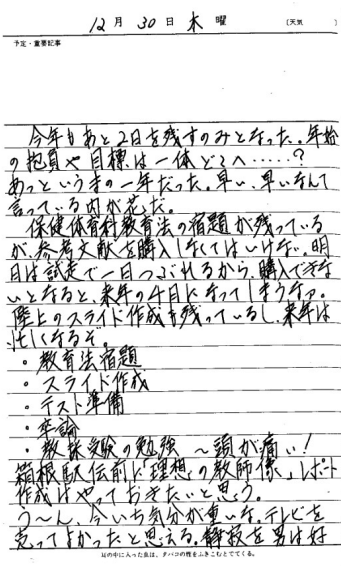 12月30日木曜 〔天気　　〕
予定・重要記事
今年もあと2日を残すのみとなった。年始
の抱負や目標は一体どこへ……?
あっというまの一年だった。早い、早いなんて
言っている内が花だ。
保健体育科教育法の宿題が残っている
が、参考文献を購入しなくてはいけない。明
日は試走で一日つぶれるから、購入できな
いとなると、来年の4日になってしまうなァ。
陸上のスライド作成も残っているし、来年は
忙しくなるぞ。
・教育法宿題
・スライド作成
・テスト準備
・卒論
・教採受験の勉強 〜頭が痛い!
箱根駅伝前に「理想の教師像」レポート
作成はやっておきたいと思う。
う〜ん、今いち気分が重いな。テレビを
売ってよかったと思える。解放を男は好
耳の中に入った虫は、タバコの煙をふきこむとでてくる。